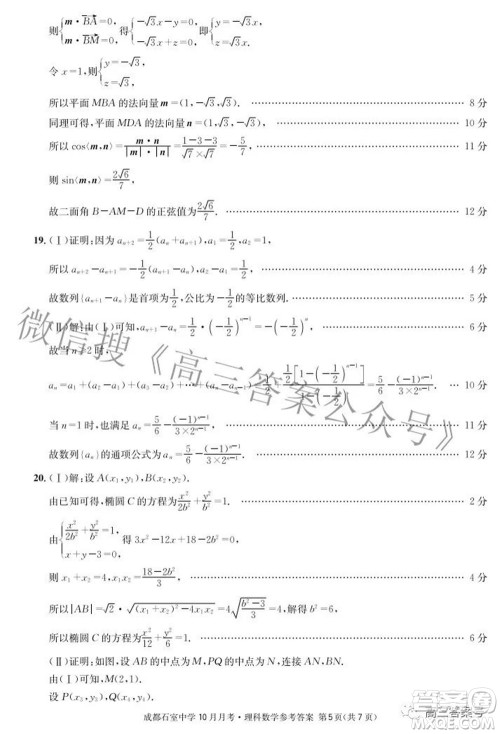 则{m·BA=0, m·BM=0, 得{-√3x-y=0, -√3x+z=0, 即{y=-√3x, z=√3x.
令 x=1,则{y=-√3, z=√3.
所以平面 MBA 的法向量 m=(1,-√3,√3). 8 分
同理可得,平面 MDA 的法向量 n=(1,√3,-√3). 10 分
所以 cos⟨m,n⟩=m·n/(|m|·|n|)=(1-3-3)/(√7×√7)=-5/7, 11 分
则 sin⟨m,n⟩=2√6/7,
故二面角 B-AM-D 的正弦值为2√6/7. 12 分
19. (Ⅰ)证明:因为 aₙ₊₂=1/2(aₙ+aₙ₊₁),a₁=1/2,a₂=1,
所以 aₙ₊₂-aₙ₊₁=-1/2(aₙ₊₁-aₙ),a₂-a₁=1/2, 4 分
故数列{aₙ₊₁-aₙ}是首项为1/2,公比为-1/2的等比数列. 5 分
(Ⅱ)解:由(Ⅰ)可知,aₙ₊₁-aₙ=1/2·(-1/2)ⁿ⁻¹=-(-1/2)ⁿ, 6 分
故当 n≥2 时,
10 分
当 n=1 时,也满足 aₙ=5/6-(-1)ⁿ⁻¹/(3×2ⁿ⁻¹), 11 分
故数列{aₙ}的通项公式为 aₙ=5/6-(-1)ⁿ⁻¹/(3×2ⁿ⁻¹). 12 分
20. (Ⅰ)解:设 A(x₁,y₁),B(x₂,y₂).
由已知可得,椭圆 C 的方程为x²/(2b²)+y²/b²=1. 2 分
得 3x²-12x+18-2b²=0,
则 x₁+x₂=4,x₁x₂=(18-2b²)/3, 4 分
所以|AB|=√2·√((x₁+x₂)²-4x₁x₂)=4√((b²-3)/3),解得 b²=6,
所以椭圆 C 的方程为x²/12+y²/6=1. 6 分
(Ⅱ)证明:如图,设 AB 的中点为 M,CD 的中点为 N,连接 AN,BN.
由(Ⅰ)可知,M(2,1).
设 P(x₃,y₃),Q(x₄,y₄).
成都石室中学 10 月月考·理科数学参考答案 第 5 页(共 7 页)
微信搜《高三答案公众号》
高三答案号